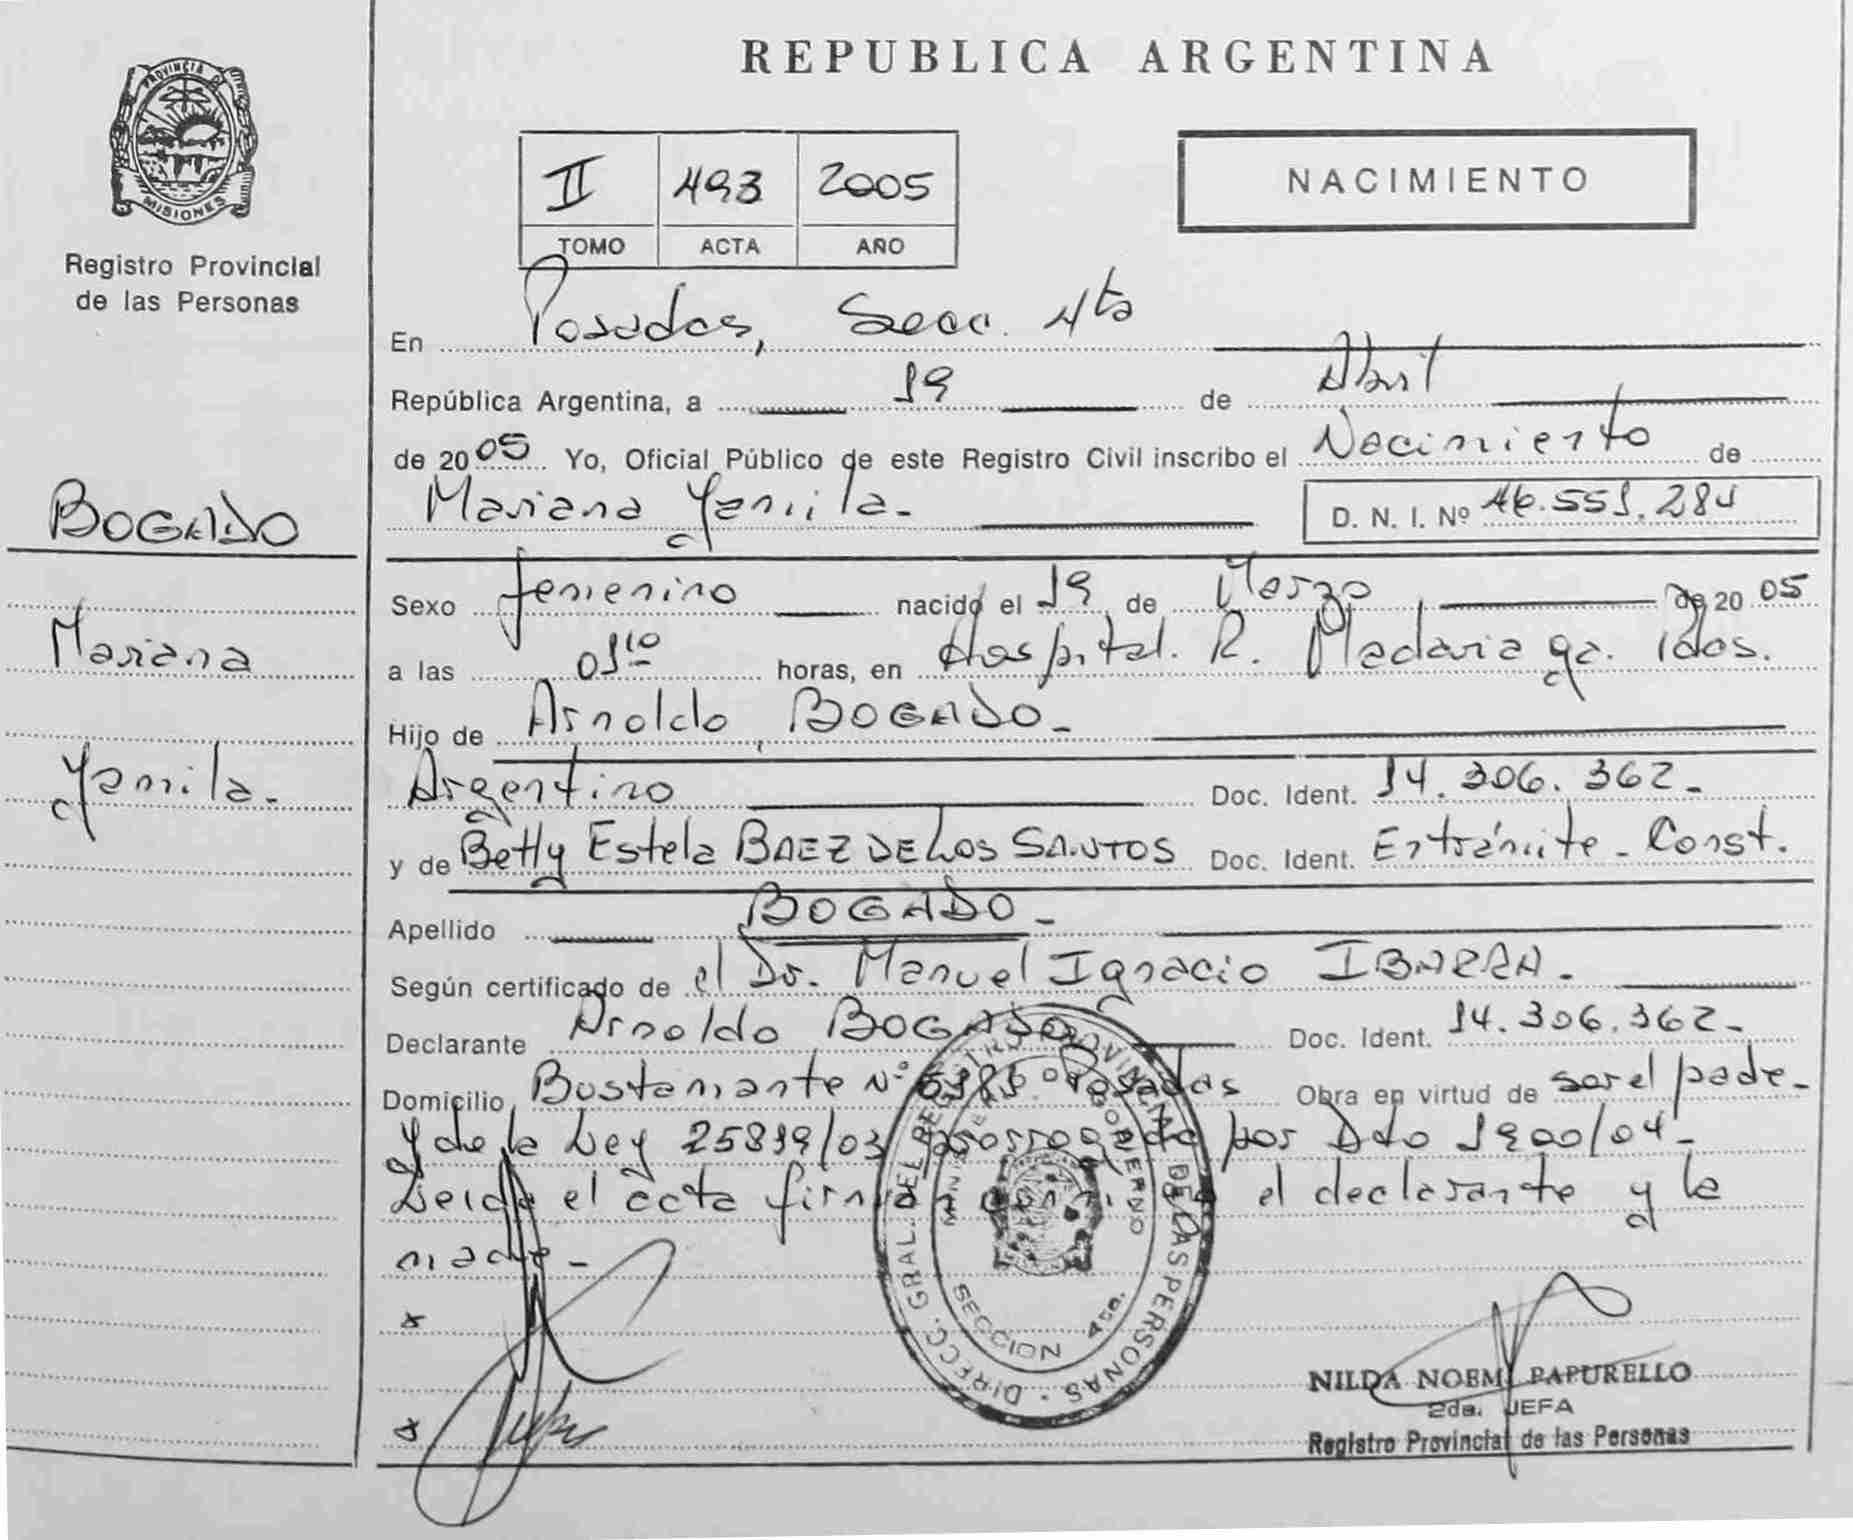 REPUBLICA ARGENTINA
PROVINCIA DE MISIONES
Registro Provincial
de las Personas
II 493 2005
TOMO ACTA AÑO
NACIMIENTO
En Posadas, Secc. 4ta
República Argentina, a 19 de Abril
de 2005 Yo, Oficial Público de este Registro Civil inscribo el Nacimiento de
Mariana Yamila.- D. N. I. Nº 46.551.284
BOGADO
Mariana
Yamila.-
Sexo femenino nacido el 19 de Marzo de 2005
a las 01 10 horas, en Hospital. R. Madariaga. Pdas.
Hijo de Arnoldo BOGADO.-
Argentino Doc. Ident. 14.306.362.-
y de Betty Estela BAEZ DE LOS SANTOS Doc. Ident. En trámite - Const.
Apellido BOGADO.-
Según certificado de el Dr. Manuel Ignacio IBARRA.-
Declarante Arnoldo BOGADO Doc. Ident. 14.306.362.-
Domicilio Bustamante Nº Posadas Obra en virtud de ser el padre.-
y de la Ley 25819/03 prorrogada por Dto 1900/04-
Leida el acta firman conmigo el declarante y la
madre -
x
x
DIRECC. GRAL. DEL REGISTRO PROVINCIAL DE LAS PERSONAS
MINISTERIO GOBIERNO
SECCION 4ta.
NILDA NOEMI PAPURELLO
2da. JEFA
Registro Provincial de las Personas